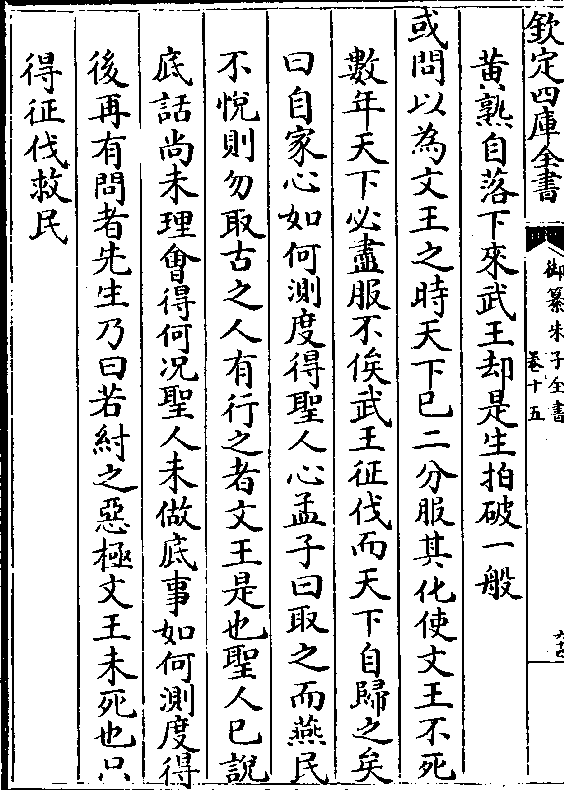 欽定四庫全書
御纂朱子全書
卷十五
黄熟自落下來武王却是生拍破一般
或問以為文王之時天下已二分服其化使文王不死
數年天下必盡服不俟武王征伐而天下自歸之矣
曰自家心如何測度得聖人心孟子曰取之而燕民
不悅則勿取古之人有行之者文王是也聖人已說
底話尚未理㑹得何况聖人未做底事如何測度得
後再有問者先生乃曰若紂之惡極文王未死也只
得征伐救民